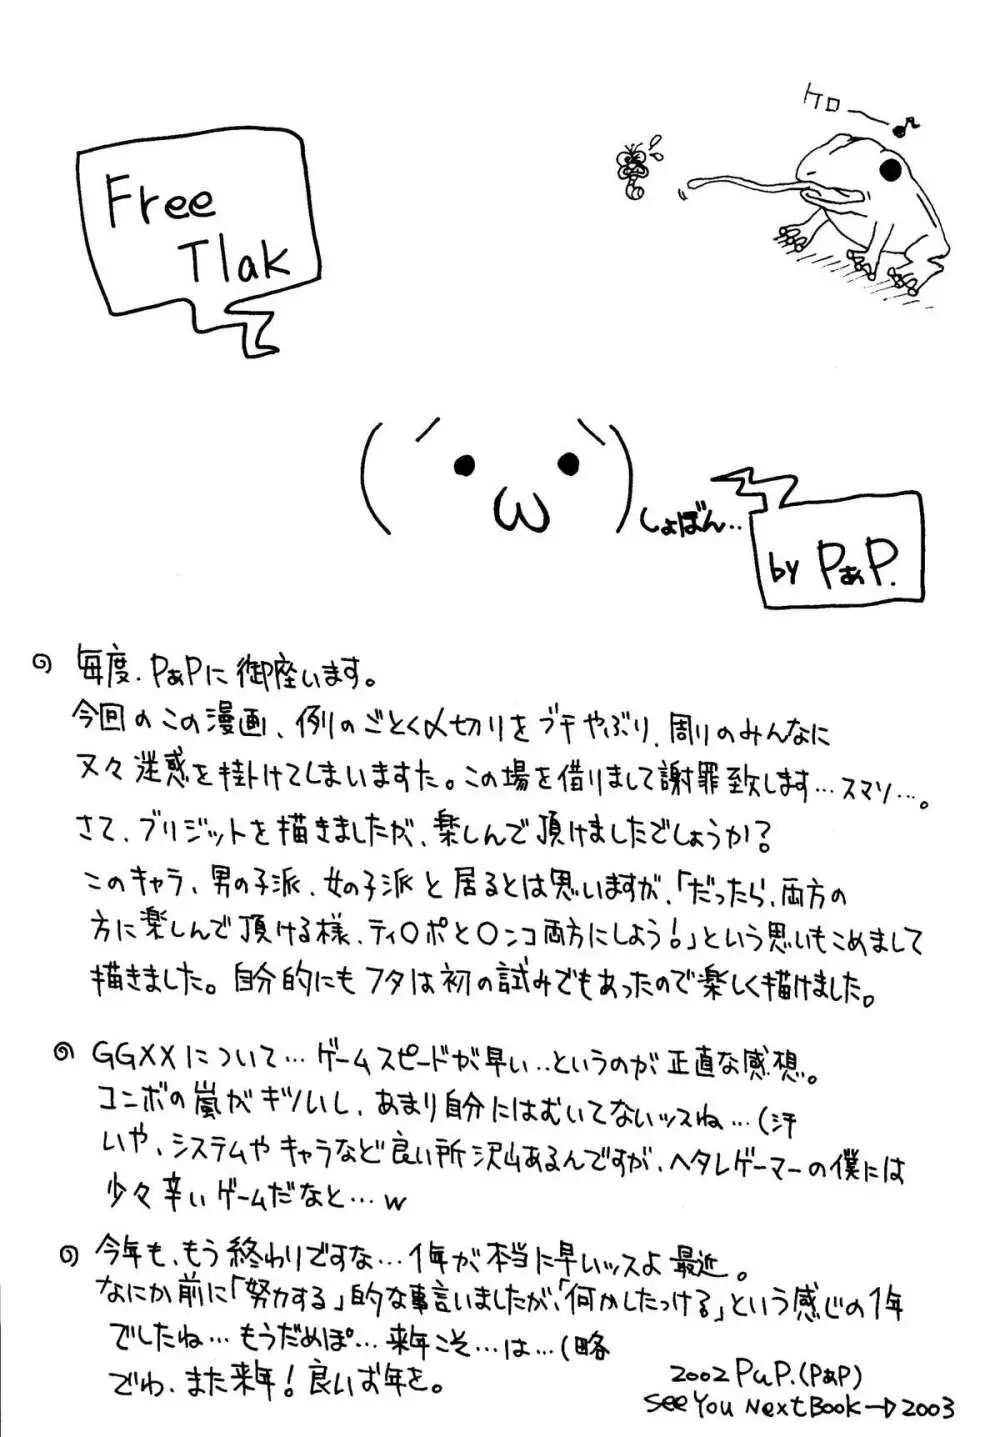 ケロ
Free
Tlak
しょぼん‥
by PぁP.
毎度、PぁPに御座います。
今回のこの漫画、例のごとく〆切りをブチやぶり、周りのみんなに
又々迷惑を掛けてしまいますた。この場を借りまして謝罪致します…スマソ…。
さて、ブリジットを描きましたが、楽しんで頂けましたでしょうか?
このキャラ、男の子派、女の子派と居るとは思いますが、「だったら、両方の
方に楽しんで頂ける様、ティ○ポと○ンコ両方にしよう!」という思いもこめまして
描きました。自分的にもフタは初の試みでもあったので楽しく描けました。
GGXXについて…ゲームスピードが早い‥というのが正直な感想。
コンボの嵐がキツいし、あまり自分にはむいてないッスね…(汗
いや、システムやキャラなど良い所沢山あるんですが、ヘタレゲーマーの僕には
少々辛いゲームだなと…w
今年も、もう終わりですな…1年が本当に早いッスよ最近。
なにか前に「努力する」的な事言いましたが、「何かしたっける」という感じの1年
でしたね…もうだめぽ…来年こそ…は…(略
でわ、また来年!良いお年を。
2002 PuP.(PぁP)
See You Next Book→2003